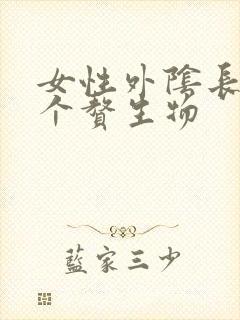 女性外陰長
个贅生物
藍家三少